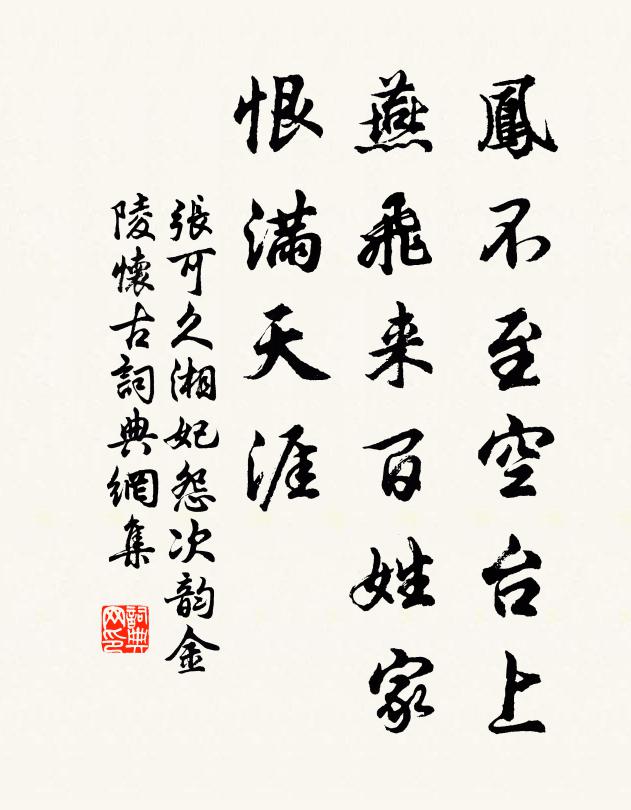 鳳不至空台上
燕飛来百姓家
恨滿天涯
張可久湘妃怨次韵金
陵懷古詞典網集
詞典
网印